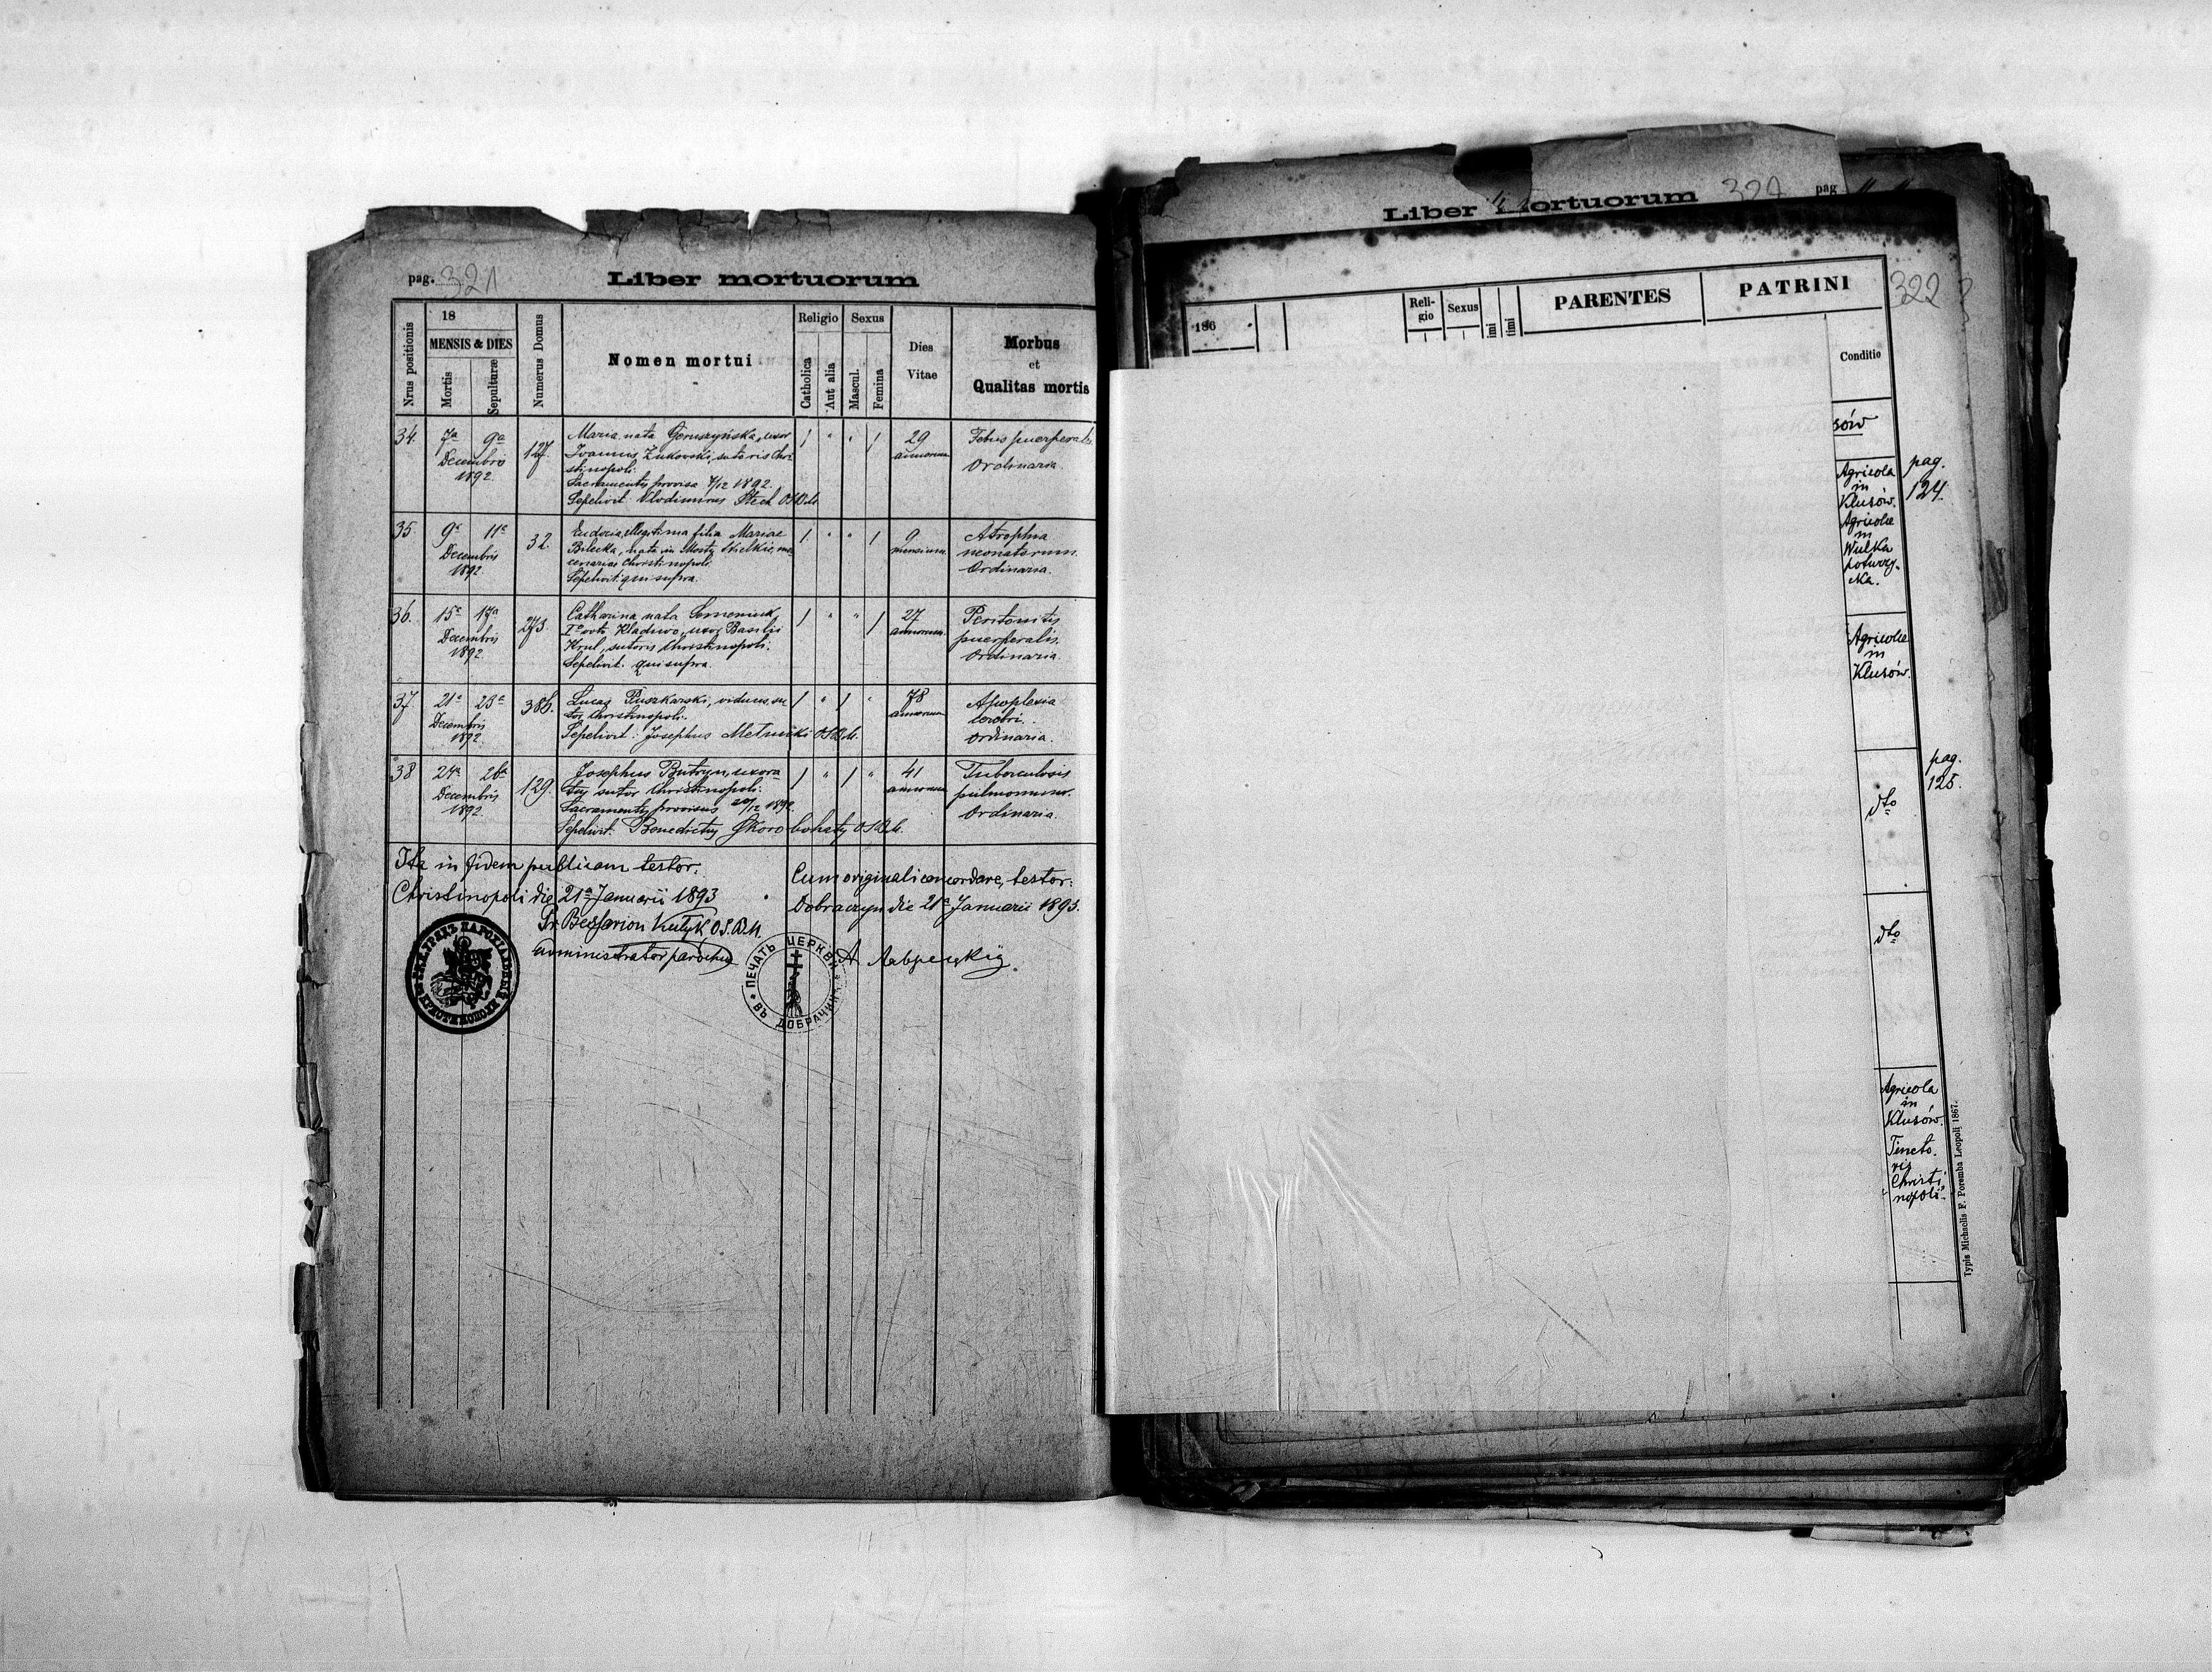 pag. 321
Liber mortuorum
Nrus positionis
18
MENSIS & DIES
Mortis
Sepulturæ
Numerus Domus
Nomen mortui
Religio
Catholica
Aut alia
Sexus
Mascul.
Femina
Dies
Vitae
Morbus
et
Qualitas mortis
34. 7a 9a
Decembris
1892
127.
Maria nata Gruszyńska, uxor
Joannis Żukowski, sutoris Chri-
stinopoli.
Sacramentis provisa 7/12 1892.
Sepelivit: Vlodimirus Stech OSBM.
/ " " /
29
annorum
Febris puerperalis
Ordinaria.
35 9a 11a
Decembris
1892
32.
Eudocia, illegitima filia Mariae
Bilecka, nata in Mosty Wielkie, mer-
cenariae Christinopoli.
Sepelivit: qui supra.
/ " " /
9
mensium
Atrophia
neonatorum.
Ordinaria.
36. 15a 17a
Decembris
1892
273.
Catharina nata Semeniuk,
Io voto Kladiwo, uxor Basilii
Krul, sutoris Christinopoli.
Sepelivit: qui supra.
/ " " /
27
annorum
Peritonitis
puerperalis.
Ordinaria
37 21a 23a
Decembris
1892.
386.
Lucas Puszkarski, viduus, su-
tor Christinopoli.
Sepelivit: Josephus Metnicki OSBM.
/ " / "
78
annorum
Apoplexia
cerebri.
Ordinaria.
38 24a 26a
Decembris
1892.
129.
Josephus Butryn, uxora-
tus sutor Christinopoli.
Sacramentis provisus 20/12 1892.
Sepelivit: Benedictus Skorobohaty OSBM.
/ " / "
41
annorum
Tuberculosis
pulmonum.
Ordinaria.
Ita in fidem publicam testor.
Christinopoli die 21a Januarii 1893
Pr. Bessarion Kułyk O.S.B.M.
administrator parochiae
Cum originali concordare, testor:
Dobraczyn die 21a Januarii 1893.
А Лаврецкій
ПЕЧАТЬ ЦЕРКВИ
ВЪ ДОБРАЧИНѢ
Liber mortuorum
pag
186
Reli-
gio
Sexus
PARENTES
PATRINI
322
Conditio
sów
Agricola
in
Klusów.
Agricolae
in
Wulka
poturzy-
cka.
pag.
124.
Agricolae
in
Klusów.
dto
pag.
125.
dto
Agricola
in
Klusów.
Tincto-
ris
Christi-
nopoli.
Typis Michaelis F. Poremba Leopoli 1867.